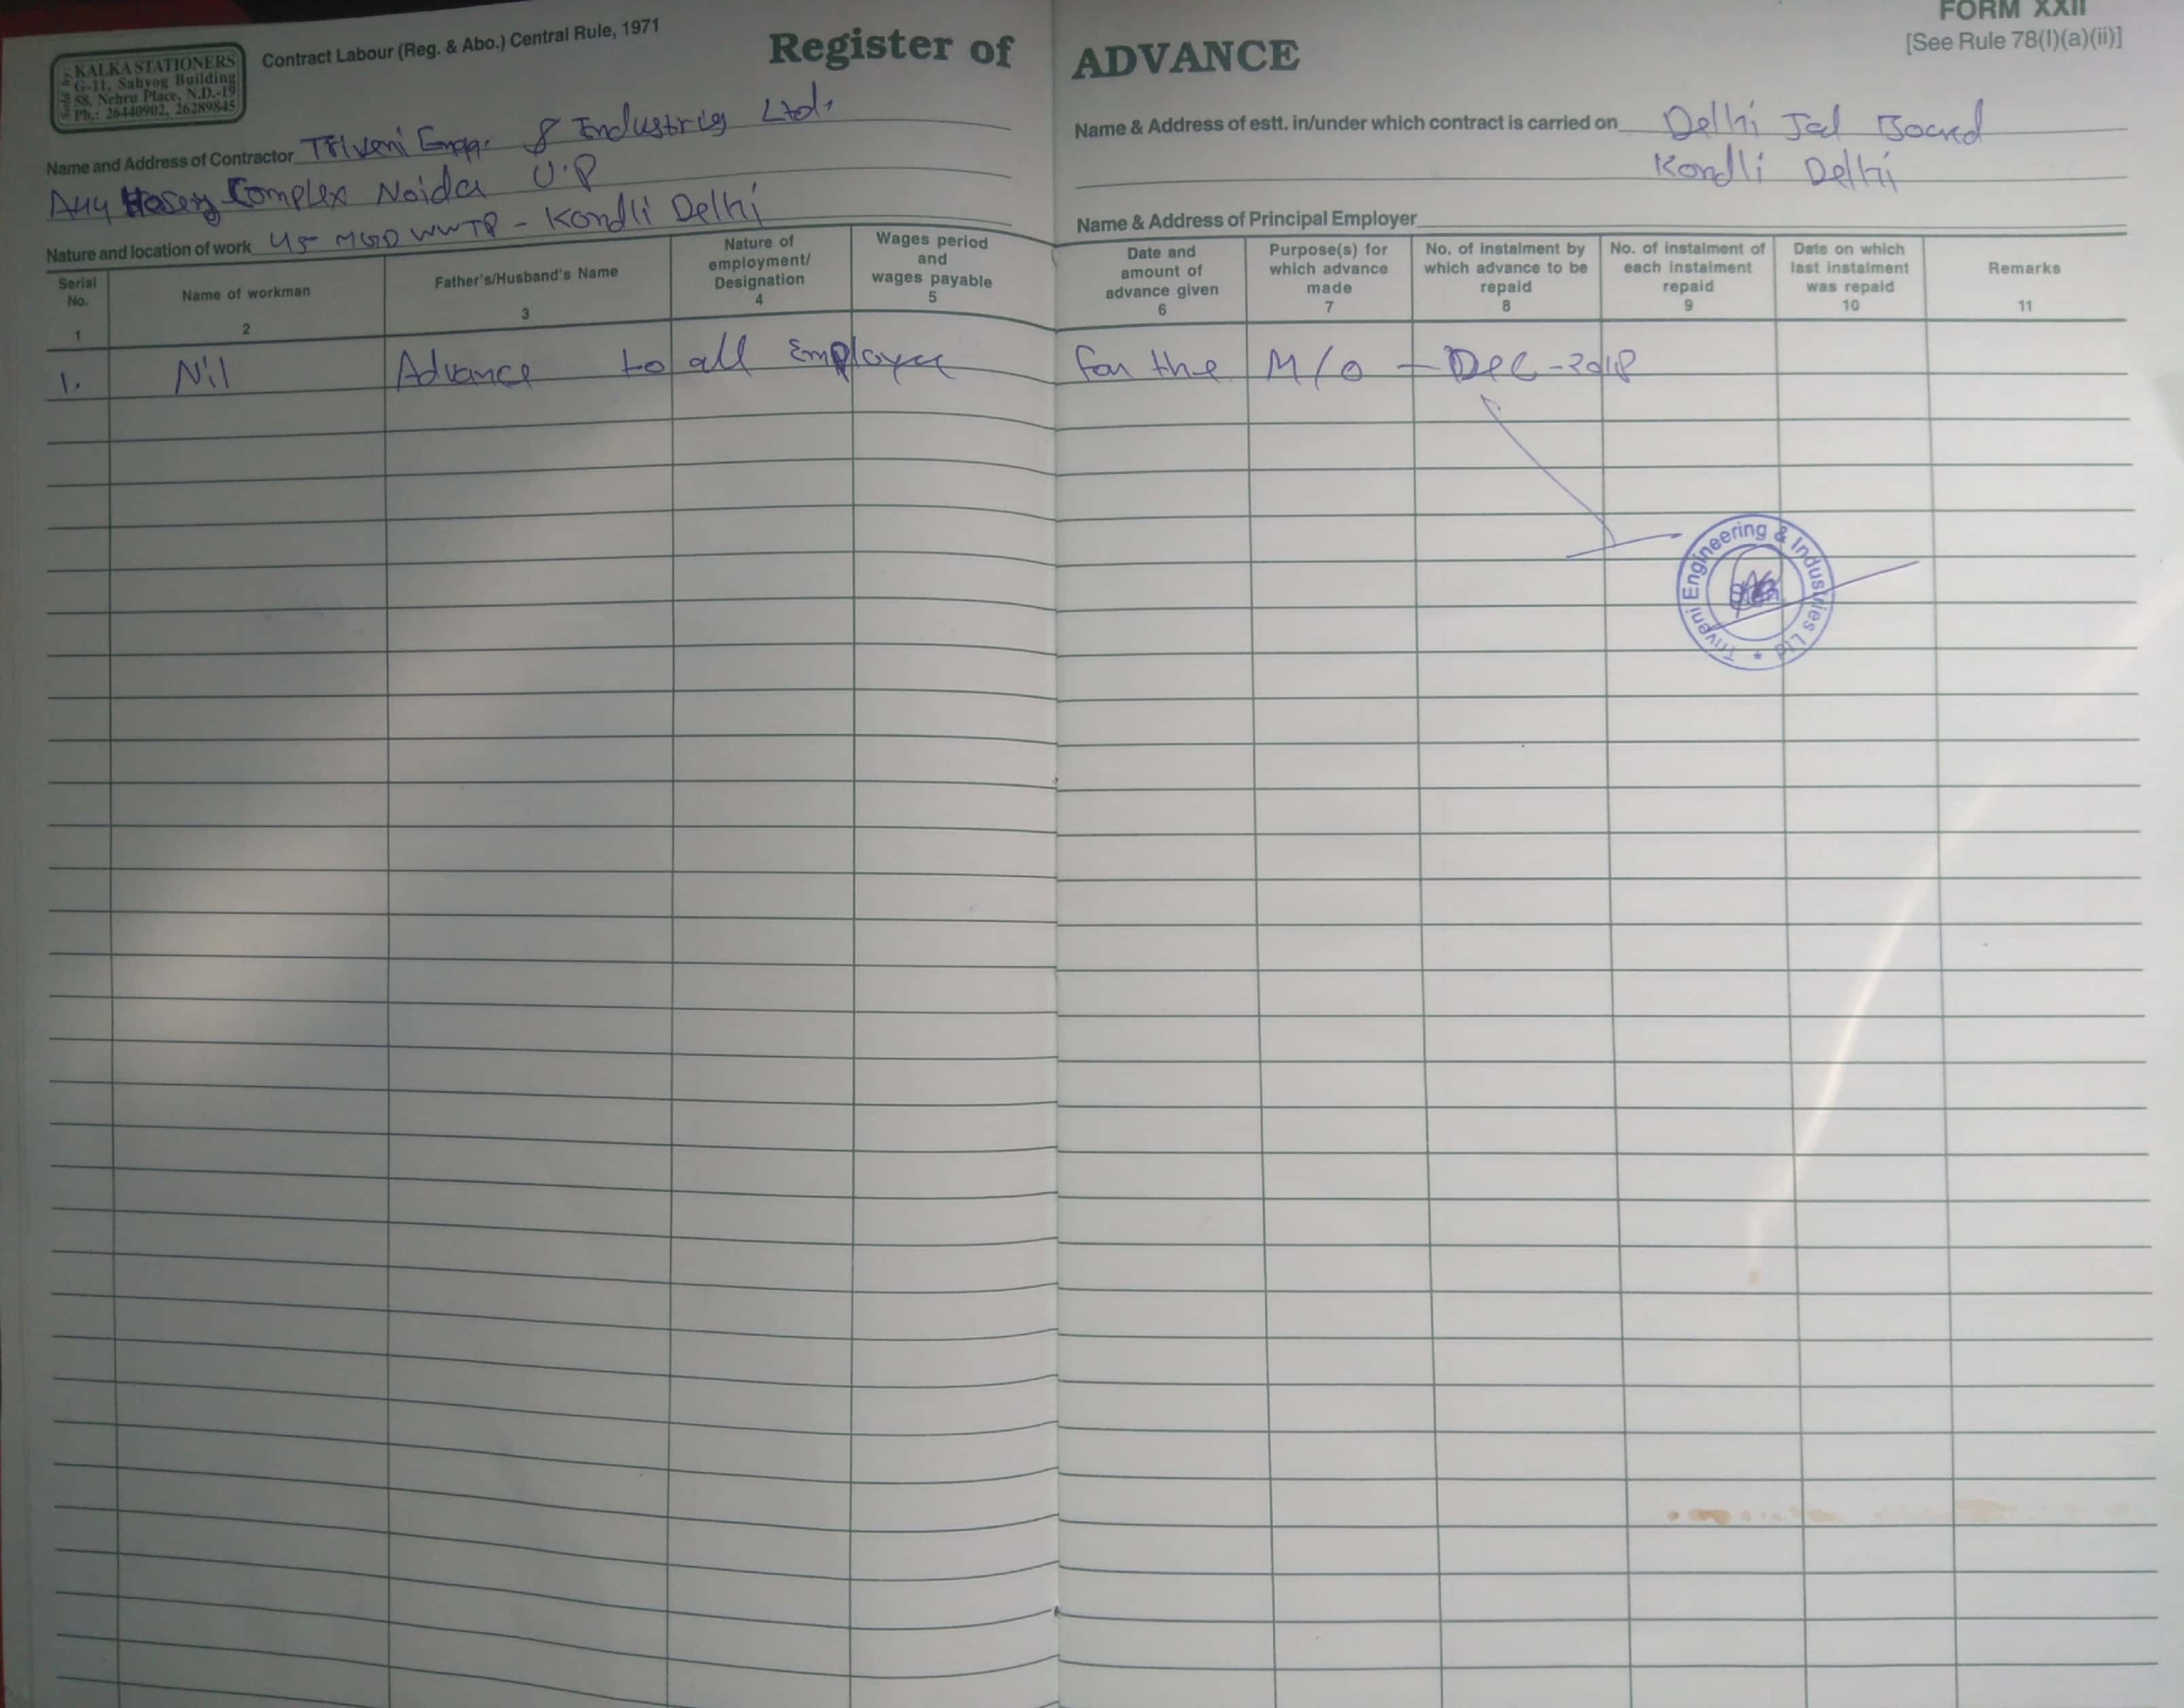 FORM XXII
[See Rule 78(I)(a)(ii)]
Contract Labour (Reg. & Abo.) Central Rule, 1971
Register of ADVANCE
Sold by:
KALKA STATIONERS
G-11, Sahyog Building
58, Nehru Place, N.D.-19
Ph.: 26440902, 26289845
Name and Address of Contractor Triveni Engg. & Industries Ltd.
Complex Noida U.P
Nature and location of work 45 MGD WWTP - Kondli Delhi
Name & Address of estt. in/under which contract is carried on Delhi Jal Board
Kondli Delhi
Name & Address of Principal Employer
Serial No. 1
Name of workman 2
Father's/Husband's Name 3
Nature of employment/ Designation 4
Wages period and wages payable 5
Date and amount of advance given 6
Purpose(s) for which advance made 7
No. of instalment by which advance to be repaid 8
No. of instalment of each instalment repaid 9
Date on which last instalment was repaid 10
Remarks 11
1. Nil Advance to all Employee for the M/O - Dec-2018
Triveni Engineering & Industries Ltd